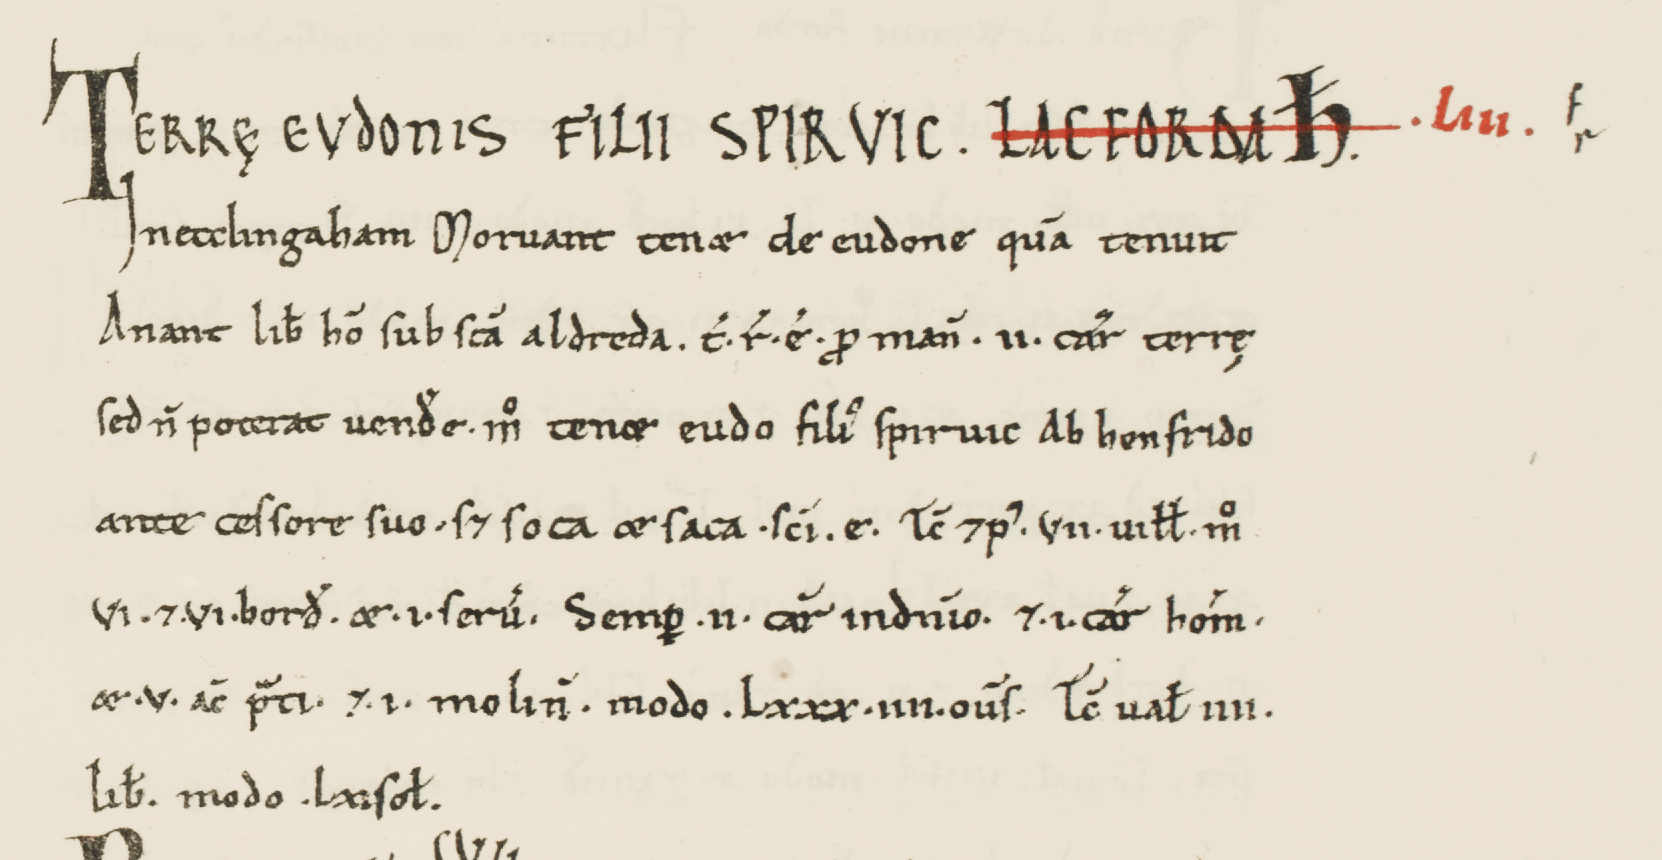 TERRĘ EVDONIS FILII SPIRVIC. LACFORM H. .LIII. f
Inetclingaham Moruant tenæ de eudone quā tenuit
Anant lib̄ hō sub scā aldreda. t́.ŕ.é. ꝓ mañ. ii. car̃ terrę
sed ñ poterat uendẽ. m̊ tenæ eudo filiꝰ spiruic Ab henfrido
ante cessore suo. s⁊ soca æ saca .scī.e. Tc̄ ⁊p᾿. vii. uilł. m̊
vi. ⁊.vi.bord̃. æ.i.serú. Semꝑ .ii. car̃ indnio. ⁊.i.car̃ hóm.
æ.v. ac̄ p̃ti. ⁊.i. moliñ. modo .lxxx.iiii.oūs. Tc̄ uał iiii.
lib̃. modo .lxisoł.